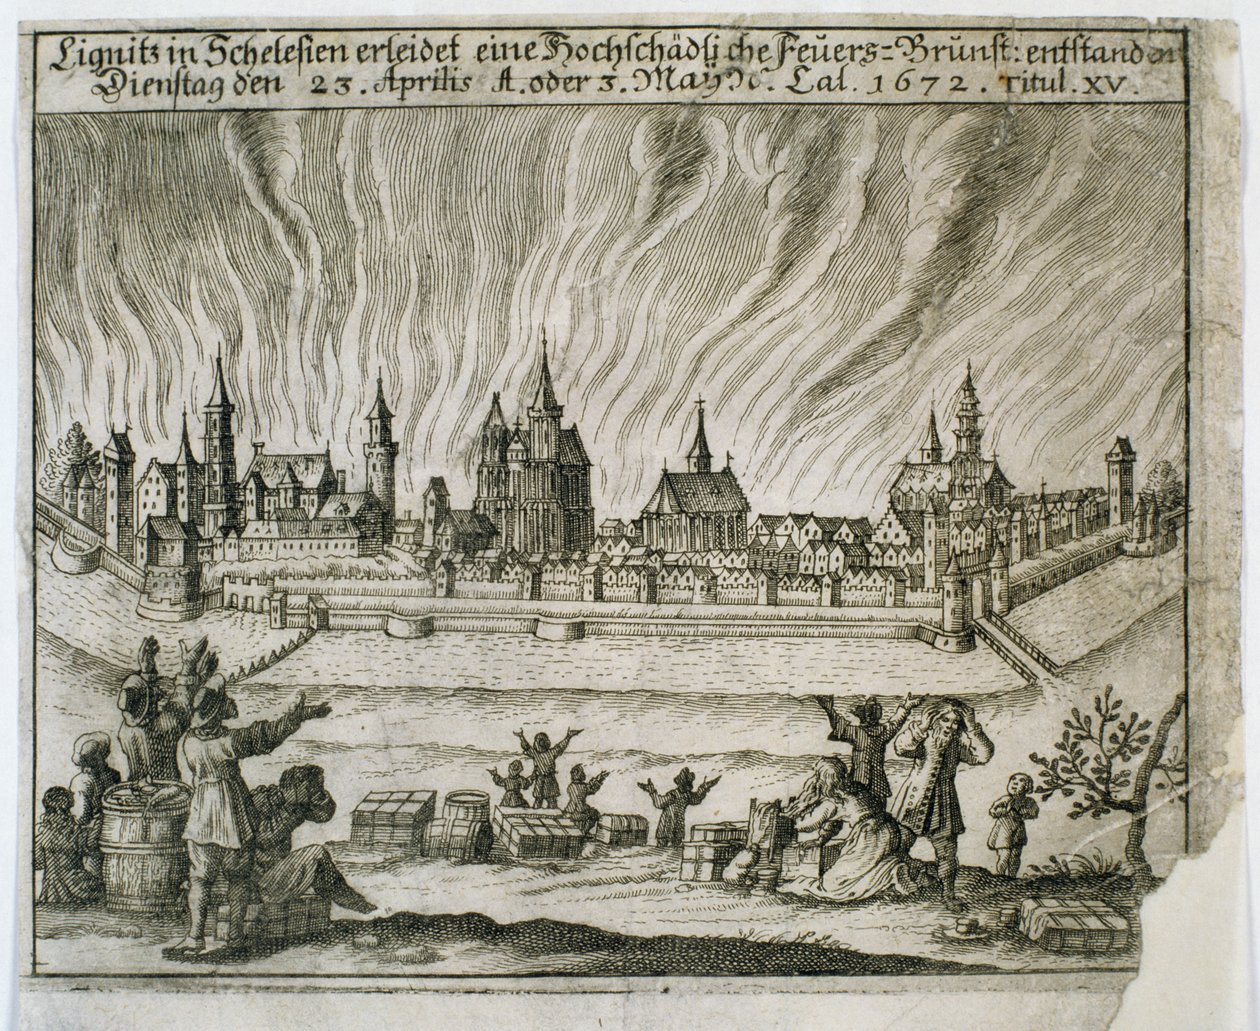 Lignitz in Schelesien erleidet eine Hochschädliche Feüers-Brünst: entstanden
Dienstag den 23. Aprilis A. oder 3. Maÿ N. Cal. 1672. Titul. XV.